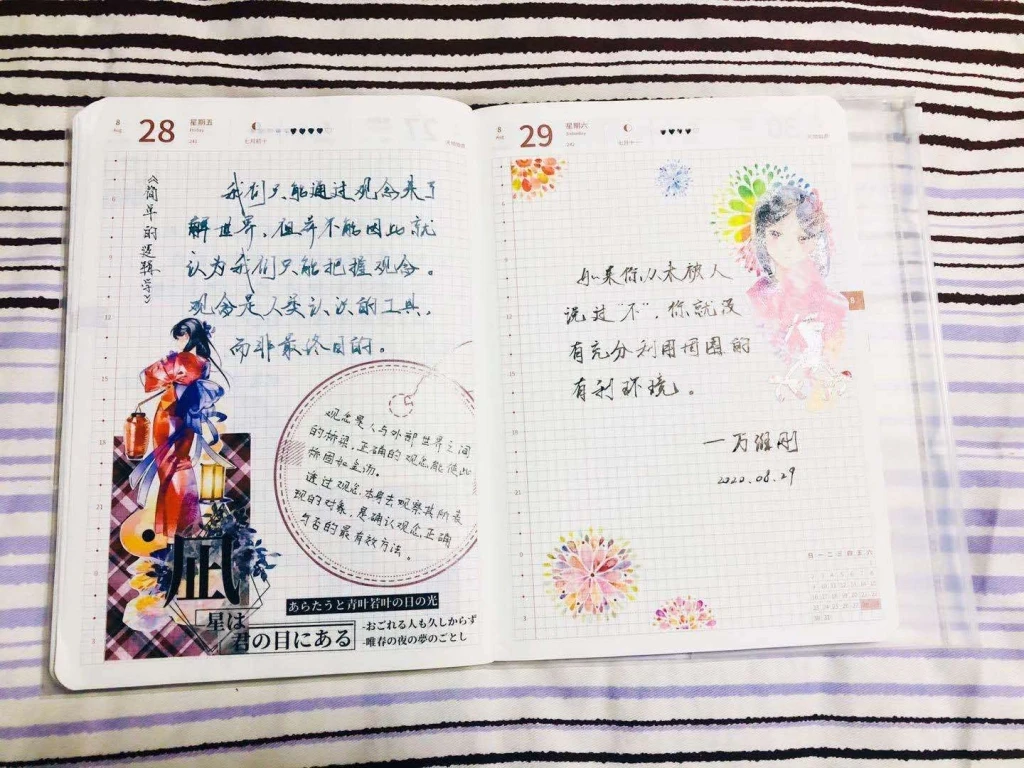 8
Aug
28
星期五
Friday
241
七月初十
《简单的逻辑学》
我们只能通过观念来了
解世界，但并不能因此就
认为我们只能把握观念。
观念是人类认识的工具，
而非最终目的。
观念是人与外部世界之间
的桥梁，正确的观念能使此
桥固如金汤。
通过观念本身去观察其所表
现的对象，是确认观念正确
与否的最有效方法。
凪
星は
君の目にある
あらたうと青叶若叶の日の光
-おごれる人も久しからず
-唯春の夜の夢のごとし
8
Aug
29
星期六
Saturday
242
七月十一
如果你从未被人
说过“不”，你就没
有充分利用周围的
有利环境。
一万维刚
2020.08.29
8
日一二三四五六